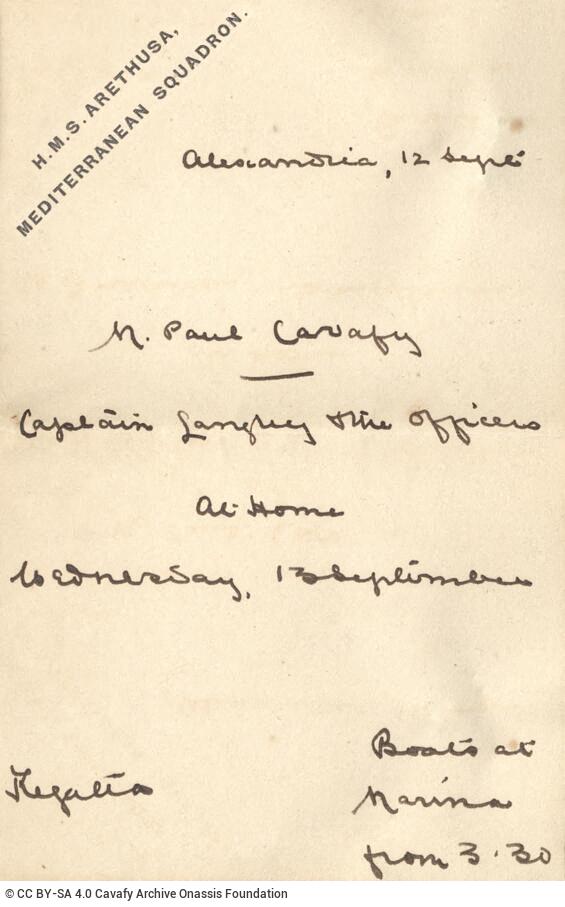 H.M.S. ARETHUSA,
MEDITERRANEAN SQUADRON.
Alexandria, 12 Sept
M. Paul Cavafy
Captain Langley & the Officers
At Home
Wednesday, 13 September
Regatta
Boats at
Marina
from 3.30
© CC BY-SA 4.0 Cavafy Archive Onassis Foundation